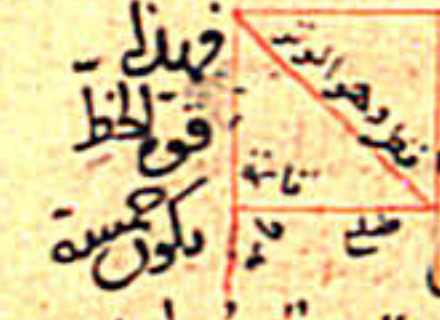 فهذا
قوة الخط
يكون خمسة
قطر وهو الوتر
قائمة
ضلع